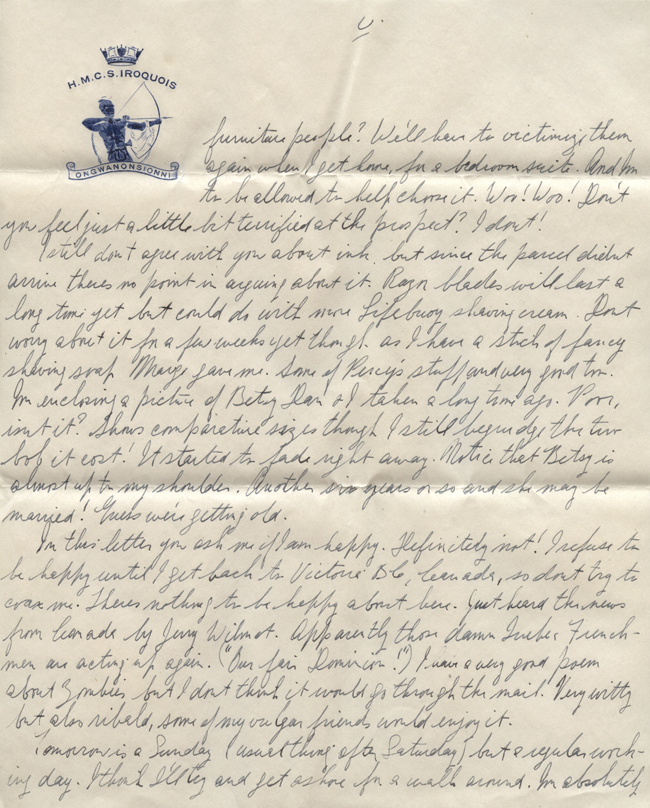 V.
H.M.C.S. IROQUOIS
ONGWANONSIONNI
furniture people? We'll have to victimize them
again when I get home, for a bedroom suite. And I'm
to be allowed to help choose it. Woo! Woo! Don't
you feel just a little bit terrified at the prospect? I dont!
I still don't agree with you about ink, but since the parcel didnt
arrive theres no point in arguing about it. Razor blades will last a
long time yet but could do with more Lifebuoy shaving cream. Dont
worry about it for a few weeks yet though as I have a stick of fancy
shaving soap Marge gave me. Some of Percy's stuff and very good too.
Im enclosing a picture of Betsy Dan & I taken a long time ago. Poor,
isnt it? Shows comparative sizes though I still begrudge the two
bob it cost! It started to fade right away. Notice that Betsy is
almost up to my shoulder. Another six years or so and she may be
married! Guess we're getting old.
In this letter you ask me if I am happy. Definitely not! I refuse to
be happy until I get back to Victoria BC, Canada, so dont try to
coax me. Theres nothing to be happy about here. Just heard the news
from Canada by Jerry Wilmot. Apparently those damn Quebec French-
men are acting up again. ("Our fair Dominion!") I have a very good poem
about Zombies but I dont think it would go through the mail. Very witty
but also ribald, some of my vulgar friends would enjoy it.
Tomorrow is a Sunday (usual thing after Saturday) but a regular work-
ing day. I think I'll try and get ashore for a walk around. Im absolutely